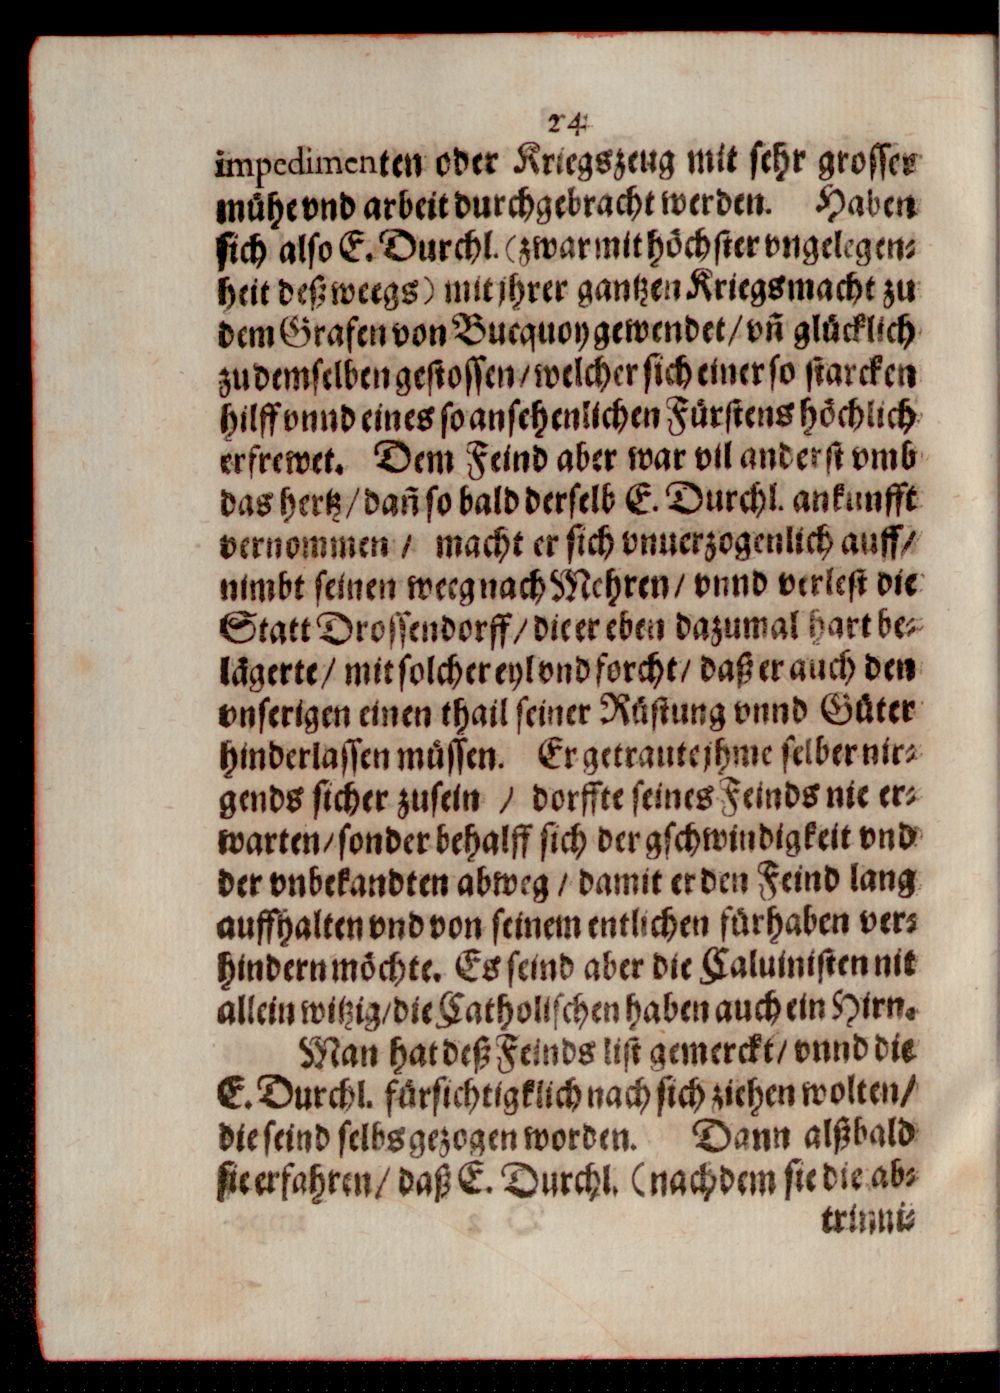 24.
impedimenten oder Kriegszeug mit sehr grosser
mühe vnd arbeit durchgebracht werden. Haben
sich also E. Durchl. (zwar mit höchster vngelegen⸗
heit deß weegs) mit jhrer gantzen Kriegsmacht zu
dem Grafen von Bucquoy gewendet/ vñ glücklich
zu demselben gestossen/ welcher sich einer so starcken
hilff vnnd eines so ansehenlichen Fürstens höchlich
erfrewet. Dem Feind aber war vil anderst vmb
das hertz/ dañ so bald derselb E. Durchl. ankunfft
vernommen / macht er sich vnuerzogenlich auff/
nimbt seinen weeg nach Mehren/ vnnd verlest die
Statt Drossendorff/ die er eben dazumal hart be⸗
lägerte/ mit solcher eyl vnd forcht/ daß er auch den
vnserigen einen thail seiner Rüstung vnnd Güter
hinderlassen müssen. Er getraute jhme selber nir⸗
gends sicher zusein / dorffte seines Feinds nie er⸗
warten/ sonder behalff sich der gschwindigkeit vnd
der vnbekandten abweg / damit er den Feind lang
auffhalten vnd von seinem entlichen fürhaben ver⸗
hindern möchte. Es seind aber die Caluinisten nit
allein witzig/ die Catholischen haben auch ein Hirn.
Man hat deß Feinds list gemerckt/ vnnd die
E. Durchl. fürsichtigklich nach sich ziehen wolten/
die seind selbs gezogen worden. Dann alßbald
sie erfahren/ daß E. Durchl. (nach dem sie die ab⸗
trinni⸗